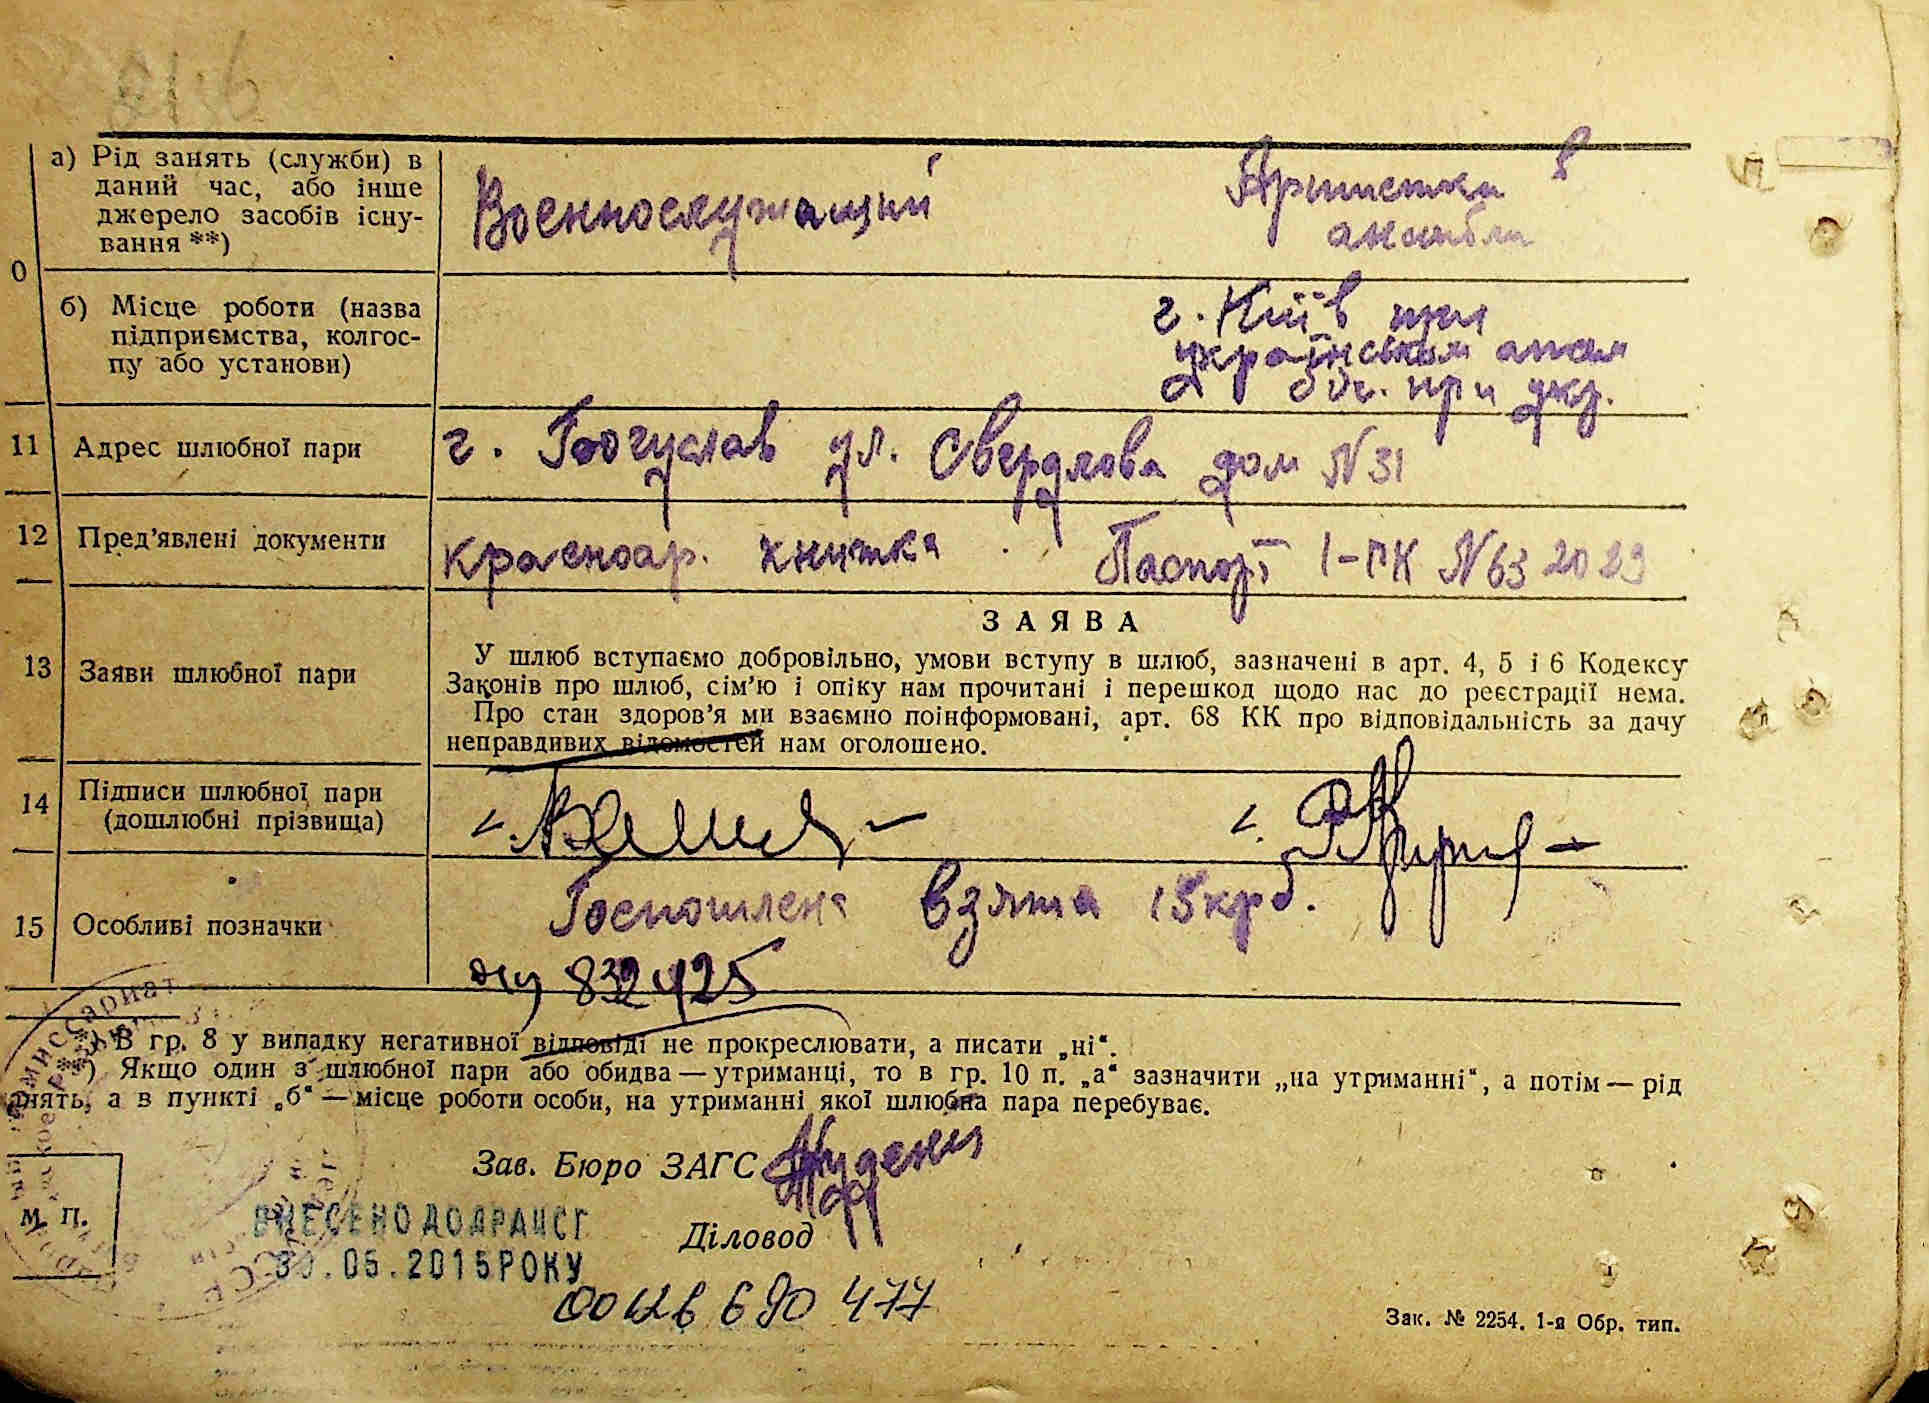 а) Рід занять (служби) в
даний час, або інше
джерело засобів існу-
вання **)
Военнослужащий
Артистка в
ансамбли
0
б) Місце роботи (назва
підприємства, колгос-
пу або установи)
г. Київ при
українськом
при укр.
11
Адрес шлюбної пари
г. Богуслав ул. Свердлова дом N 31
12
Пред’явлені документи
красноар. книжка
Паспорт
N 632029
13
Заяви шлюбної пари
ЗАЯВА
У шлюб вступаємо добровільно, умови вступу в шлюб, зазначені в арт. 4, 5 і 6 Кодексу
Законів про шлюб, сім’ю і опіку нам прочитані і перешкод щодо нас до реєстрації нема.
Про стан здоров’я ми взаємно поінформовані, арт. 68 КК про відповідальність за дачу
неправдивих відомостей нам оголошено.
14
Підписи шлюбної пари
(дошлюбні прізвища)
15
Особливі позначки
Госпошлена взята 15 крб.
832425
В гр. 8 у випадку негативної відповіді не прокреслювати, а писати „ні“.
**) Якщо один з шлюбної пари або обидва — утриманці, то в гр. 10 п. „а“ зазначити „на утриманні“, а потім — рід
занять, а в пункті „б“ — місце роботи особи, на утриманні якої шлюбна пара перебуває.
Зав. Бюро ЗАГС
М. П.
ВНЕСЕНО ДО ДРАЦСГ
30.05.2015 РОКУ
Діловод
00126 690 477
Зак. № 2254. 1-я Обр. тип.